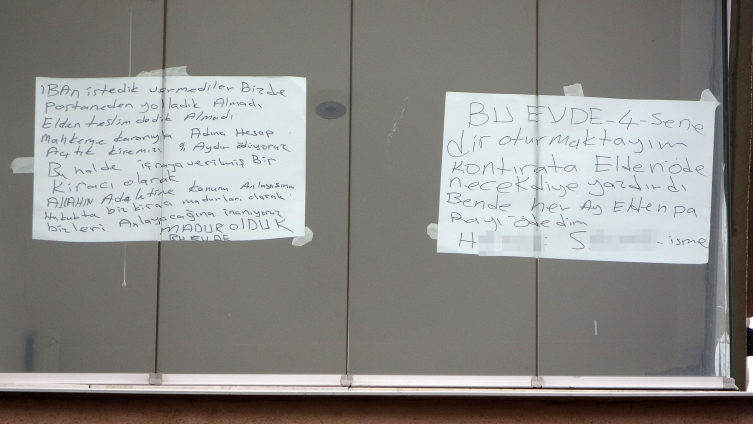 IBAN istedik vermediler Bizde
Postaneden yolladık Almadı
Elden teslim dedik Almadı
Mahkeme kararıyla Adına Hesap
Açtık kiremizi 9 Aydır ödüyoruz
Bu halde icraya verilmiş Bir
Kiracı olarak
ALLAHIN Adaletine kanunu
Hukukta biz kiracı madurları olarak
bizleri Anlayacağına inanıyoruz
MADUR OLDUK
BU EVDE
BU EVDE-4-Sene
dir oturmaktayım
kontırata Elden öde
necek diye yazdırdı
Bende her Ay Elden pa
Rayı-ödedim
H S -isme